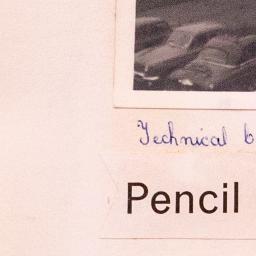 Technical
Pencil